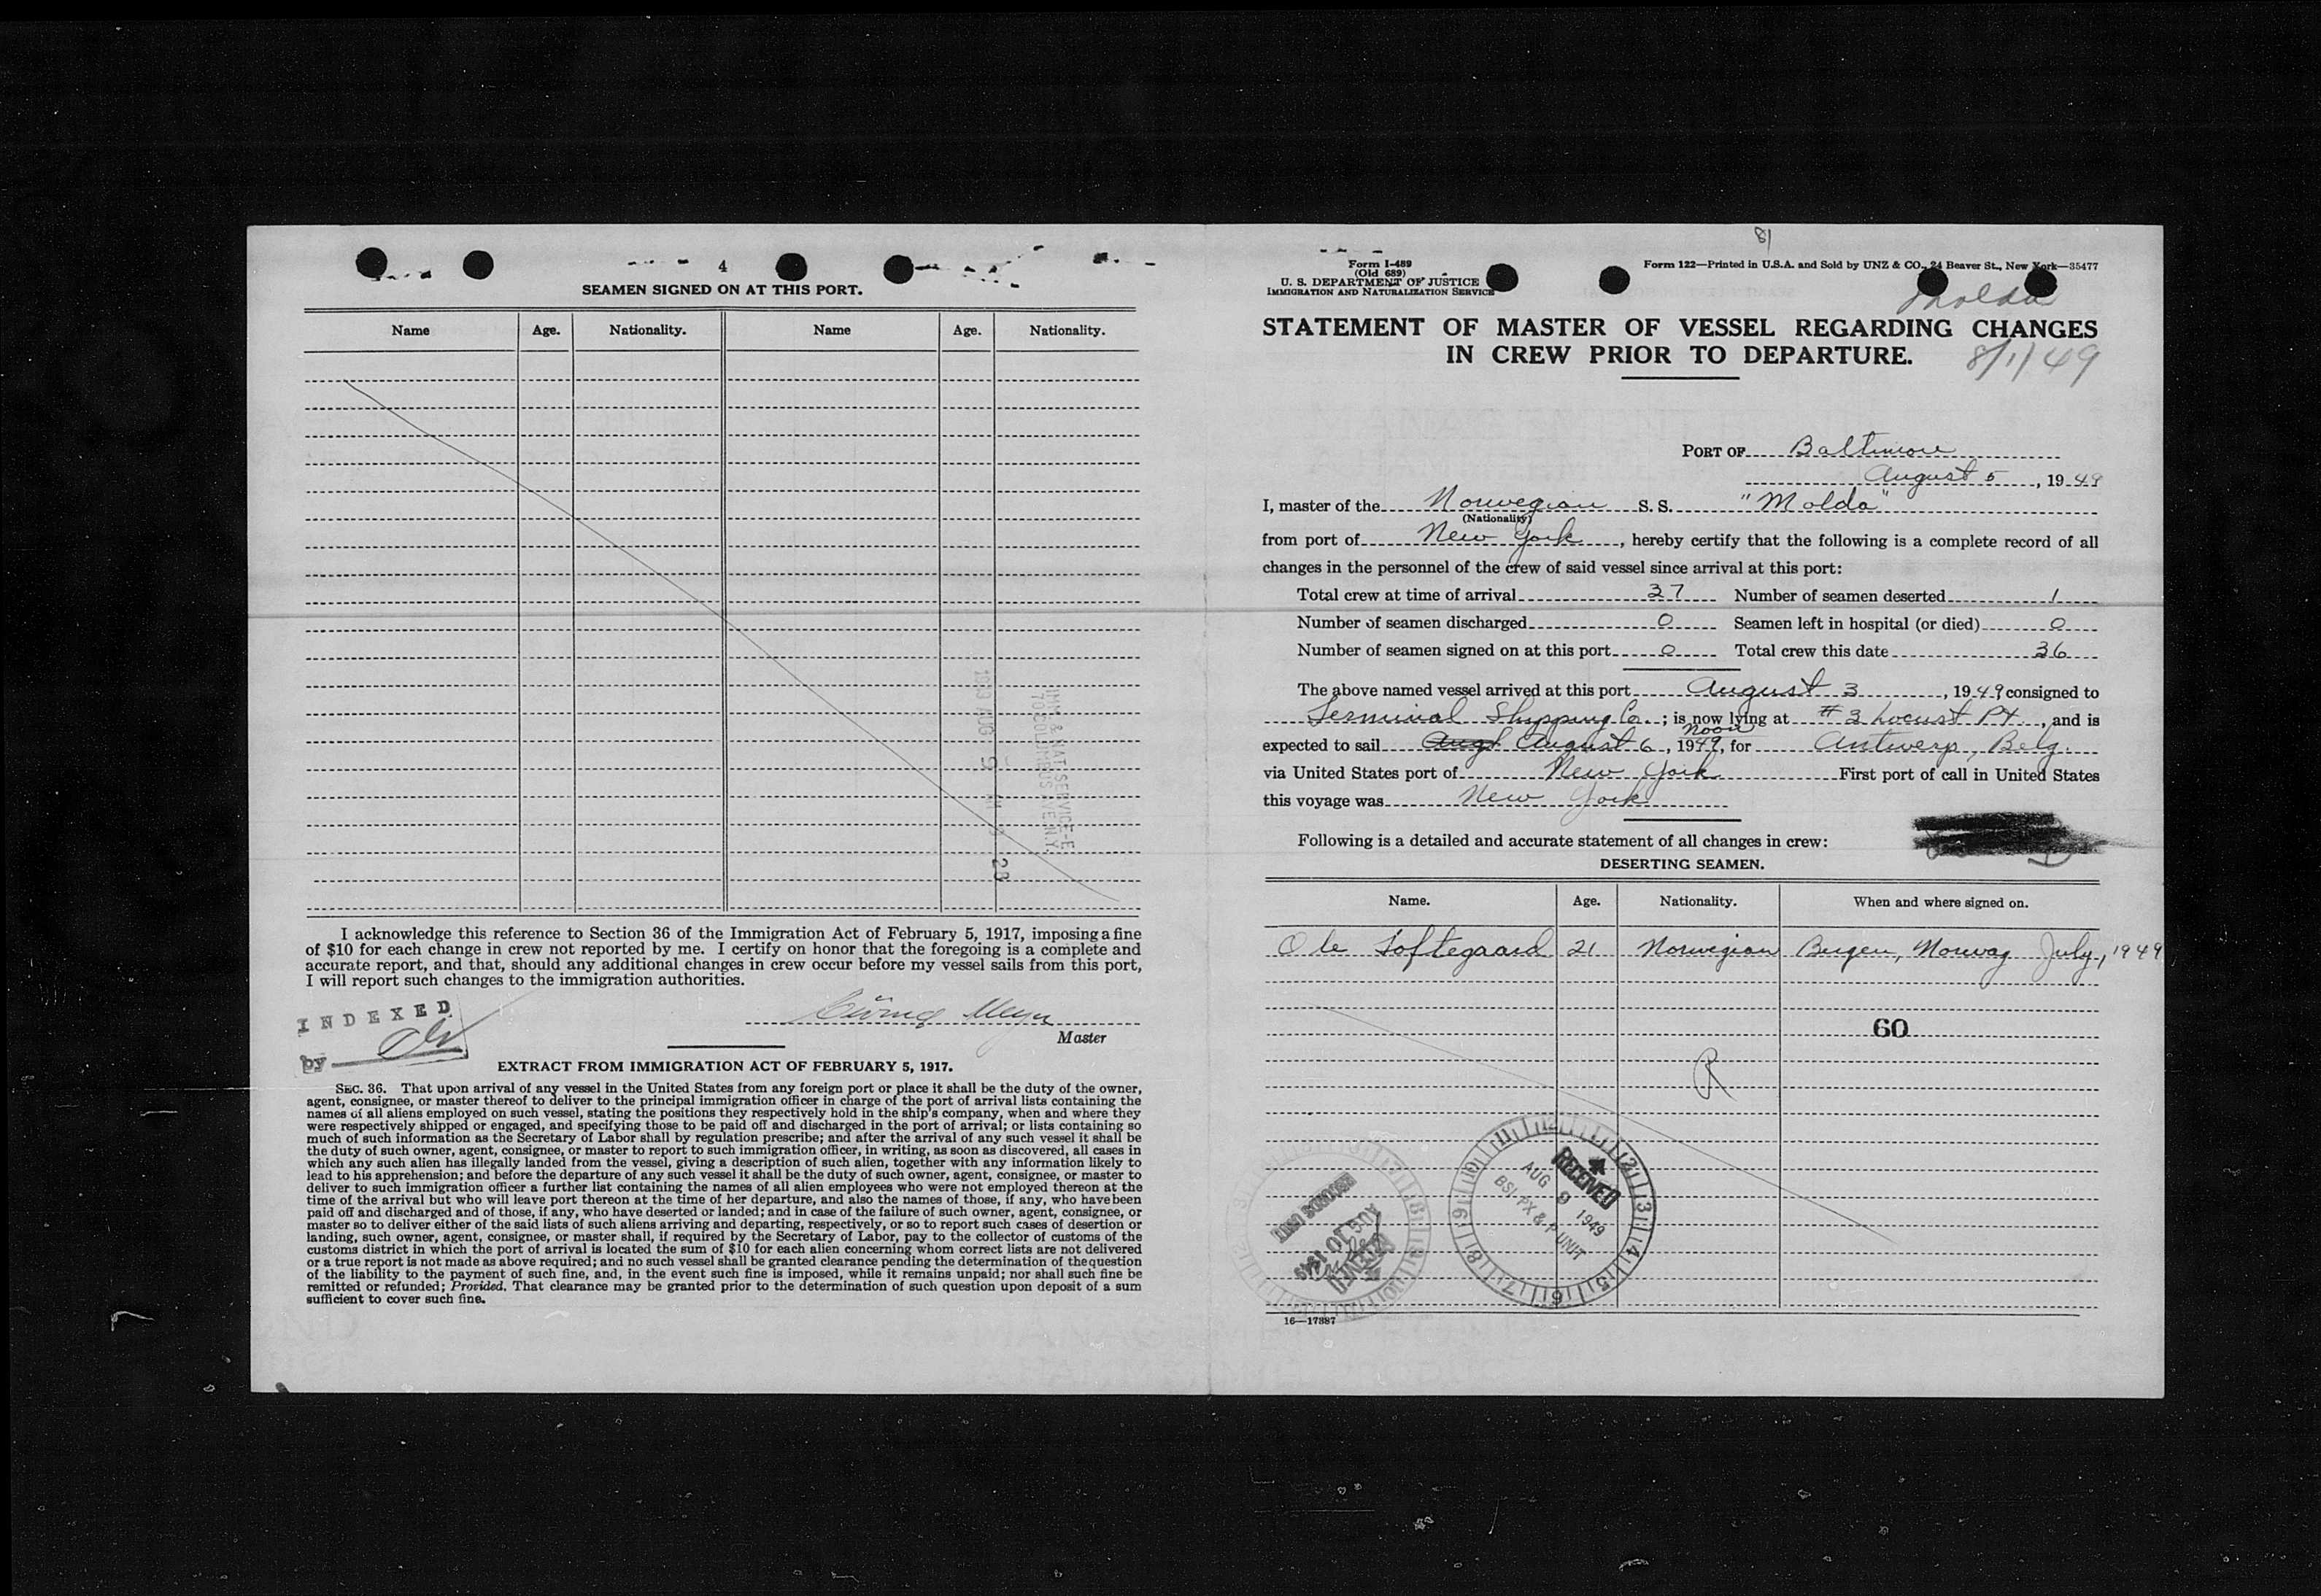 4
SEAMEN SIGNED ON AT THIS PORT.
Name Age. Nationality. Name Age. Nationality.
IMM. & NAT. SERVICE-E.
70 COLUMBUS AVE. N.Y.
1949 AUG 9 AM 9 23
I acknowledge this reference to Section 36 of the Immigration Act of February 5, 1917, imposing a fine
of $10 for each change in crew not reported by me. I certify on honor that the foregoing is a complete and
accurate report, and that, should any additional changes in crew occur before my vessel sails from this port,
I will report such changes to the immigration authorities.
INDEXED
by
Master
EXTRACT FROM IMMIGRATION ACT OF FEBRUARY 5, 1917.
SEC. 36. That upon arrival of any vessel in the United States from any foreign port or place it shall be the duty of the owner,
agent, consignee, or master thereof to deliver to the principal immigration officer in charge of the port of arrival lists containing the
names of all aliens employed on such vessel, stating the positions they respectively hold in the ship's company, when and where they
were respectively shipped or engaged, and specifying those to be paid off and discharged in the port of arrival; or lists containing so
much of such information as the Secretary of Labor shall by regulation prescribe; and after the arrival of any such vessel it shall be
the duty of such owner, agent, consignee, or master to report to such immigration officer, in writing, as soon as discovered, all cases in
which any such alien has illegally landed from the vessel, giving a description of such alien, together with any information likely to
lead to his apprehension; and before the departure of any such vessel it shall be the duty of such owner, agent, consignee, or master to
deliver to such immigration officer a further list containing the names of all alien employees who were not employed thereon at the
time of the arrival but who will leave port thereon at the time of her departure, and also the names of those, if any, who have been
paid off and discharged and of those, if any, who have deserted or landed; and in case of the failure of such owner, agent, consignee, or
master so to deliver either of the said lists of such aliens arriving and departing, respectively, or so to report such cases of desertion or
landing, such owner, agent, consignee, or master shall, if required by the Secretary of Labor, pay to the collector of customs of the
customs district in which the port of arrival is located the sum of $10 for each alien concerning whom correct lists are not delivered
or a true report is not made as above required; and no such vessel shall be granted clearance pending the determination of the question
of the liability to the payment of such fine, and, in the event such fine is imposed, while it remains unpaid; nor shall such fine be
remitted or refunded; Provided, That clearance may be granted prior to the determination of such question upon deposit of a sum
sufficient to cover such fine.
81
Form I-489
(Old 689)
U. S. DEPARTMENT OF JUSTICE
IMMIGRATION AND NATURALIZATION SERVICE
Form 122—Printed in U.S.A. and Sold by UNZ & CO., 24 Beaver St., New York—35477
Molda
STATEMENT OF MASTER OF VESSEL REGARDING CHANGES
IN CREW PRIOR TO DEPARTURE.
8/1/49
PORT OF Baltimore
August 5, 1949
I, master of the Norwegian S. S. "Molda"
(Nationality)
from port of New York, hereby certify that the following is a complete record of all
changes in the personnel of the crew of said vessel since arrival at this port:
Total crew at time of arrival 37 Number of seamen deserted 1
Number of seamen discharged 0 Seamen left in hospital (or died) 0
Number of seamen signed on at this port 0 Total crew this date 36
The above named vessel arrived at this port August 3, 1949 consigned to
Terminal Shipping Co.; is now lying at #3 Locust Pt, and is
noon
expected to sail Augt August 6, 1949, for Antwerp, Belg.
via United States port of New York First port of call in United States
this voyage was New York
Following is a detailed and accurate statement of all changes in crew:
DESERTING SEAMEN.
Name. Age. Nationality. When and where signed on.
Ole Toftegaard 21 Norwegian Bergen, Norway July, 1949
60
R
RECEIVED
AUG 9 1949
BSI. PX & P UNIT
AUG 10 1949
RECEIVED
16—17887